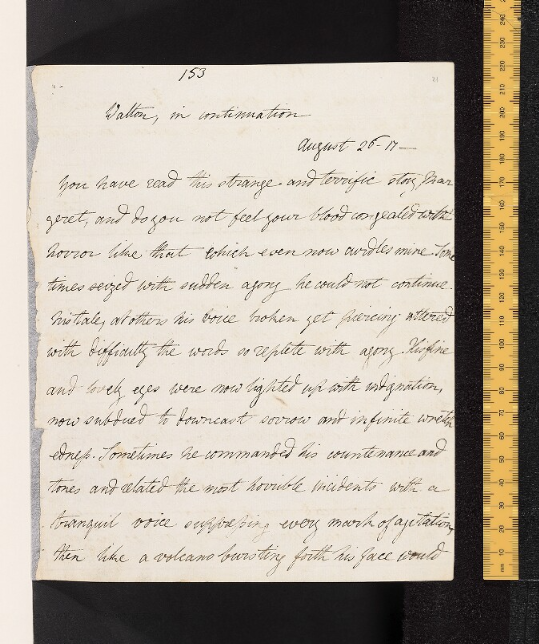 153
Walton, in continuation
August 26 - 17 —
You have read this strange and terrific story Mar
garet, and do you not feel your blood congealed with
horror like that which even now curdles mine. Some
times seized with sudden agony he could not continue
his tale, at others his voice broken yet piercing uttered
with difficulty the words so replete with agony. His fine
and lovely eyes were now lighted up with indignation,
now subdued to downcast sorrow and infinite wretch
edness. Sometimes he commanded his countenance and
tones and related the most horrible incidents with a
tranquil voice suppressing every mark of agitation,
then like a volcano bursting forth his face would